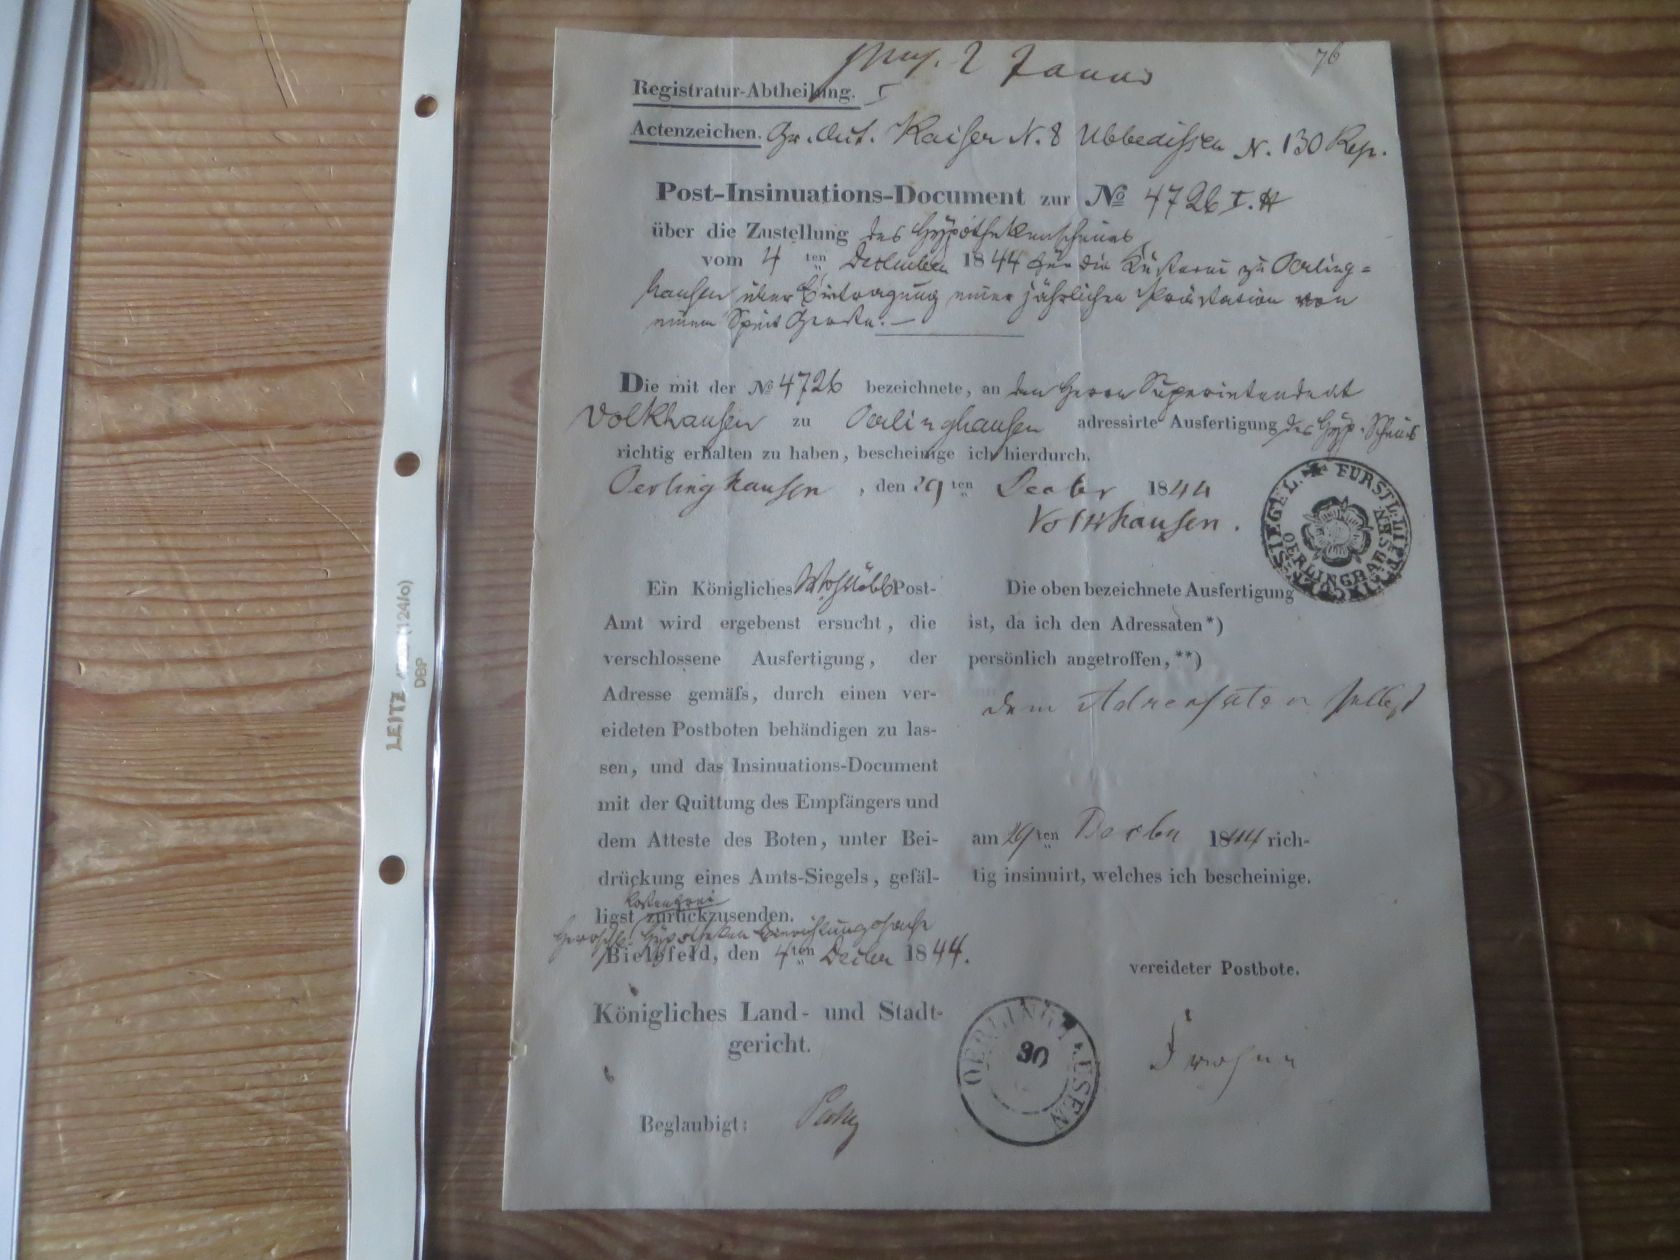 76
Registratur-Abtheilung. I
Actenzeichen. Kaiser N. 8 Ubbedissen N. 130 Rep.
Post-Insinuations-Document zur No 4726 I. H
über die Zustellung des Hypothekenscheines
vom 4 ten December 1844 für die Küsterei zu Oerling=
hausen über Eintragung einer jährlichen Prästation von
einem Spint Gerste.—
Die mit der No 4726 bezeichnete, an den Herrn Superintendent
Volkhausen zu Oerlinghausen adressirte Ausfertigung des Hyp. Scheins
richtig erhalten zu haben, bescheinige ich hierdurch.
Oerlinghausen, den 29 ten Decbr 1844
Volkhausen.
FÜRSTL. LIPP. OERLINGHAUSEN
Ein Königliches Wohllöbl Post-
Amt wird ergebenst ersucht, die
verschlossene Ausfertigung, der
Adresse gemäfs, durch einen ver-
eideten Postboten behändigen zu las-
sen, und das Insinuations-Document
mit der Quittung des Empfängers und
dem Atteste des Boten, unter Bei-
drückung eines Amts-Siegels, gefäl-
kostenfrei
ligst zurückzusenden.
Herrschl. Hypotheken Einrichtungssache
Bielefeld, den 4 ten Decber 1844.
Königliches Land- und Stadt-
gericht.
Beglaubigt:
Die oben bezeichnete Ausfertigung
ist, da ich den Adressaten *)
persönlich angetroffen, **)
dem Adressaten selbst
am 29 ten Decbr 1844 rich-
tig insinuirt, welches ich bescheinige.
vereideter Postbote.
OERLINGHAUSEN
30
LEITZ (124/o)
DBP